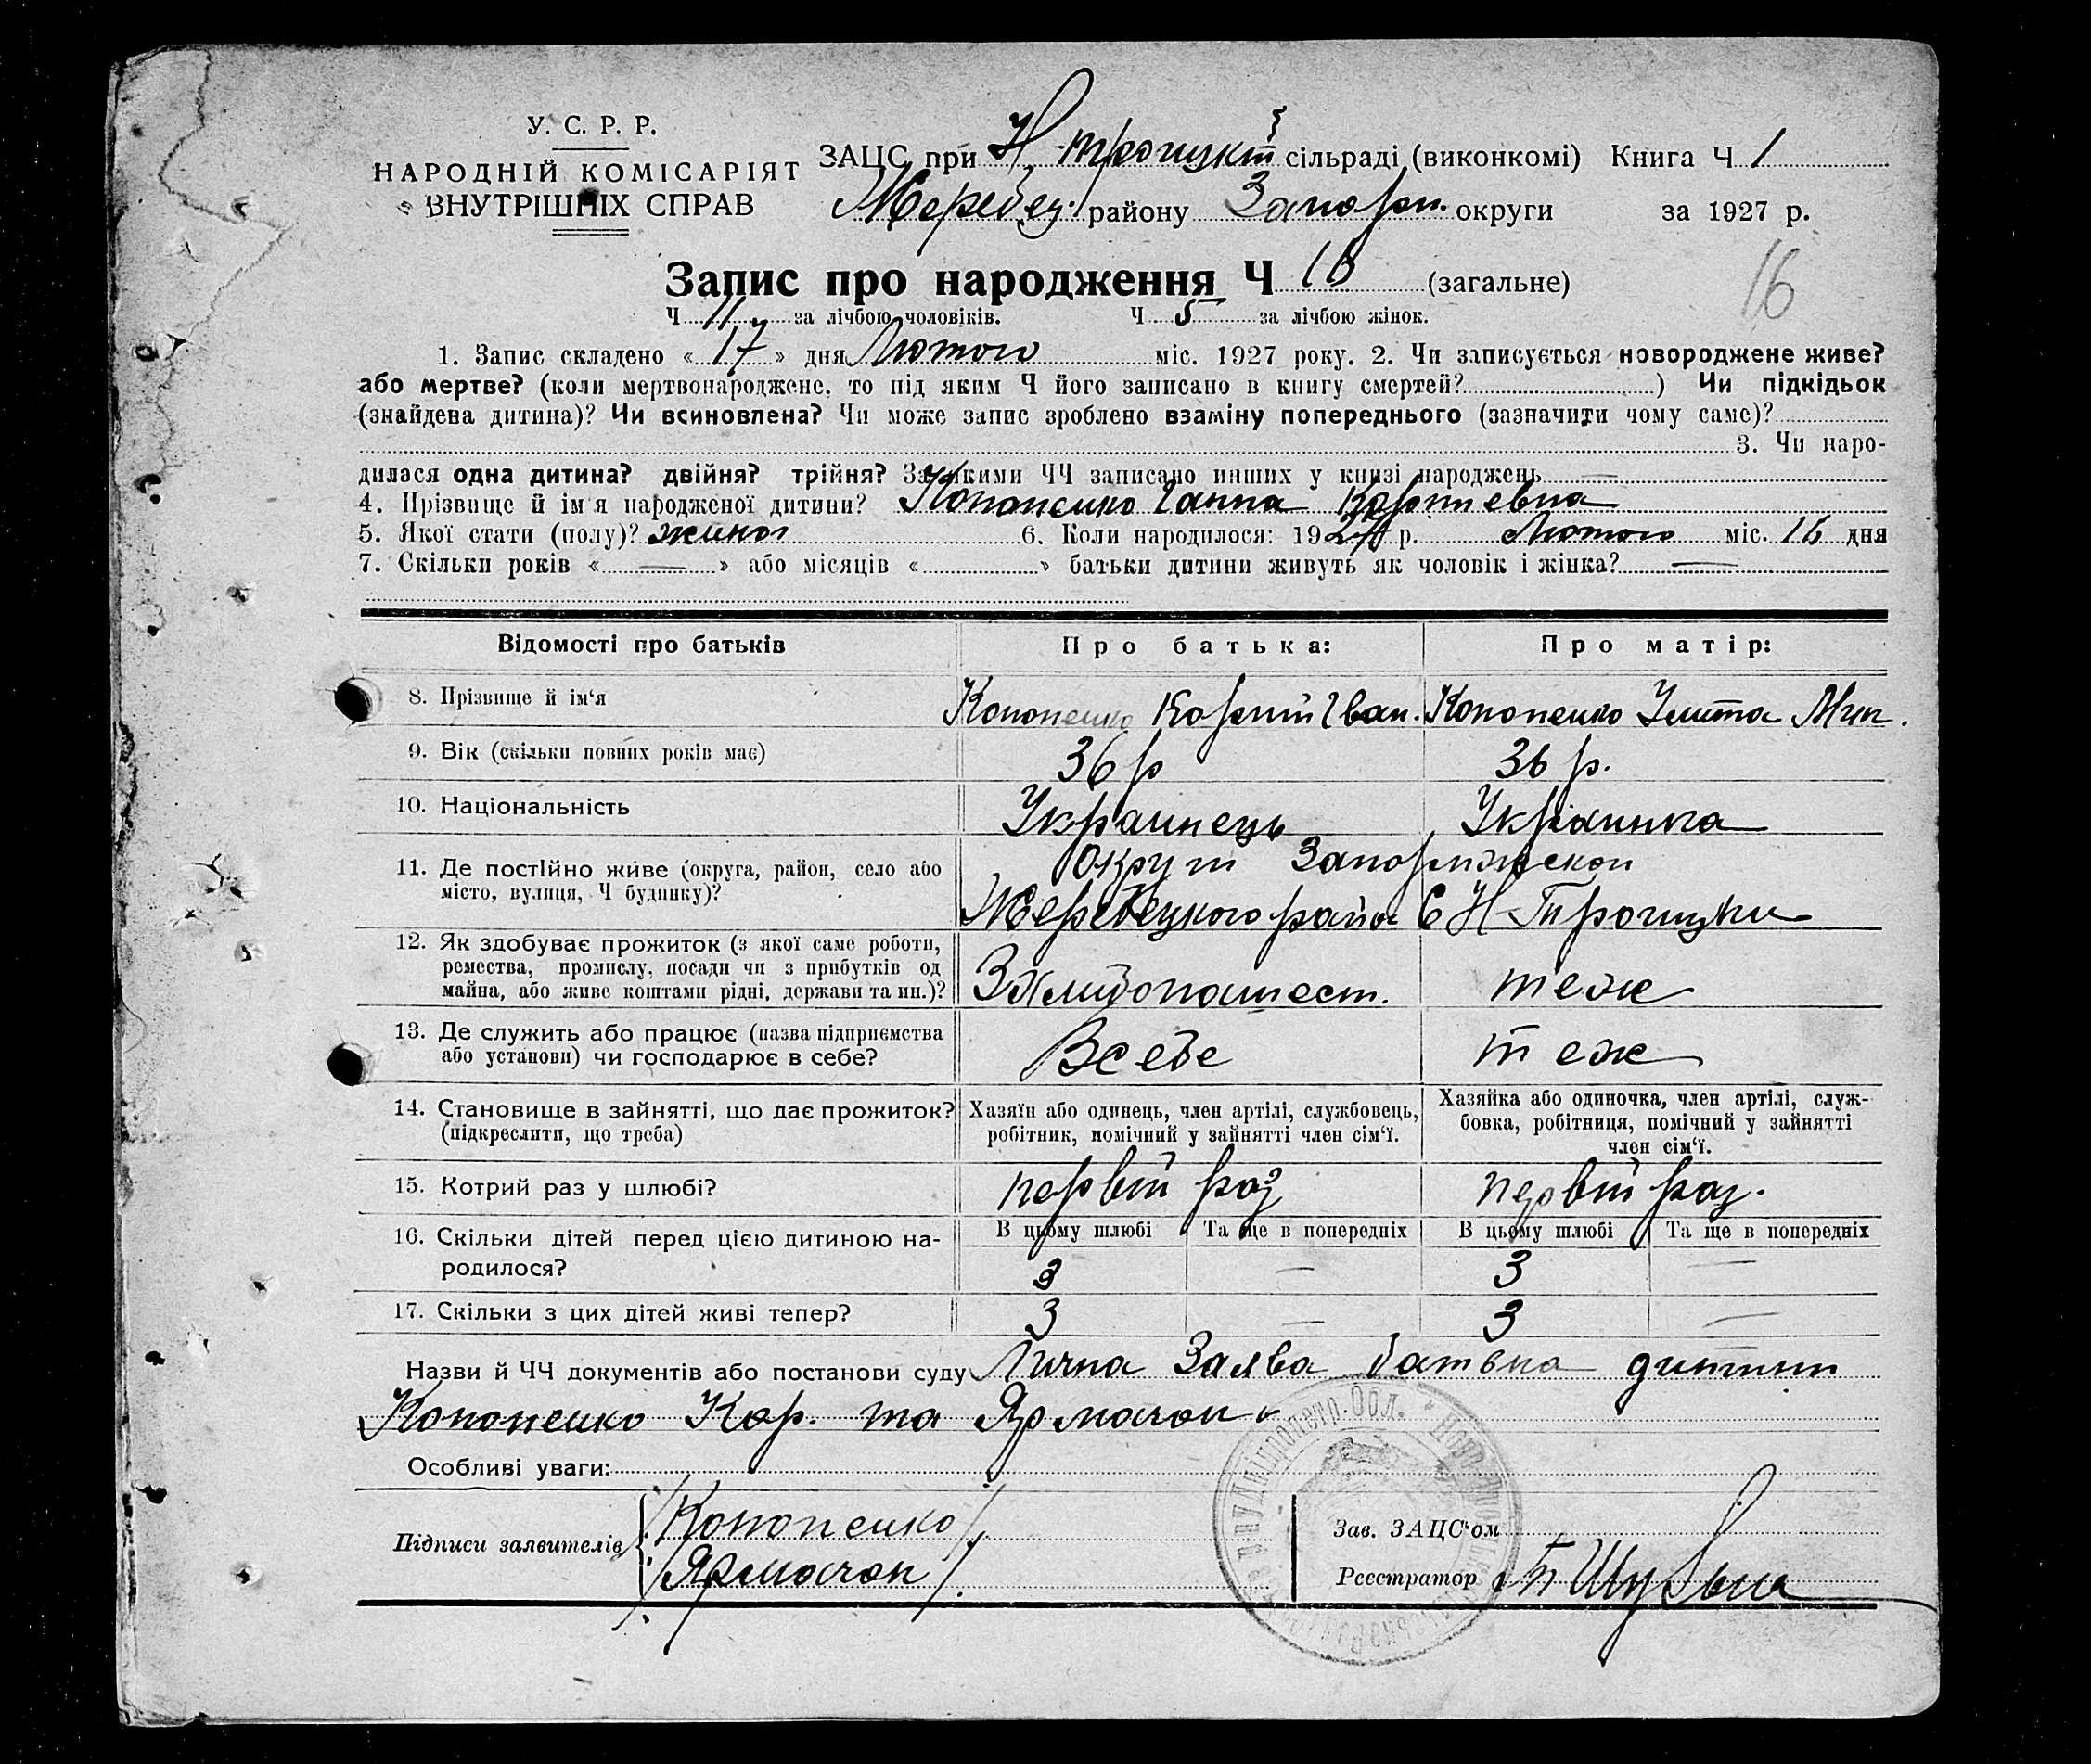 У. С. Р. Р.
НАРОДНІЙ КОМІСАРІЯТ
ВНУТРІШНІХ СПРАВ
ЗАЦС при Н. сільраді (виконкомі) Книга Ч 1
Жеребец. району Запори. округи за 1927 р.
Запис про народження Ч 16 (загальне)
16
Ч 11 за лічбою чоловіків. Ч 5 за лічбою жінок.
1. Запис складено « 17 » дня Лютого міс. 1927 року. 2. Чи записується новороджене живе?
або мертве? (коли мертвонароджене, то під яким Ч його записано в книгу смертей? ) Чи підкідьок
(знайдена дитина)? Чи всиновлена? Чи може запис зроблено взаміну попереднього (зазначити чому саме)?
3. Чи наро-
дилася одна дитина? двійня? трійня? За якими ЧЧ записано инших у книзі народжень —
4. Прізвище й ім'я народженої дитини? Кононенко Ганна
5. Якої стати (полу)? жіноч 6. Коли народилося: 1927 р. Лютого міс. 16 дня
7. Скільки років « — » або місяців « » батьки дитини живуть як чоловік і жінка? —
Відомості про батьків Про батька: Про матір:
8. Прізвище й ім'я Кононенко Іван. Кононенко Улита
9. Вік (скільки повних років має) 36 р 36 р.
10. Національність Украинець Украинка
11. Де постійно живе (округа, район, село або
місто, вулиця, Ч будинку)?
Округи
Жеребецкого С Н-Трогицки
12. Як здобуває прожиток (з якої саме роботи,
ремества, промислу, посади чи з прибутків од
майна, або живе коштами рідні, держави та ин.)?
теж
13. Де служить або працює (назва підприємства
або установи) чи господарює в себе?
В себе теж
14. Становище в зайнятті, що дає прожиток?
(підкреслити, що треба)
Хазяїн або одинець, член артілі, службовець,
робітник, помічний у зайнятті член сім'ї.
Хазяйка або одиночка, член артілі, служ-
бовка, робітниця, помічний у зайнятті
член сім'ї.
15. Котрий раз у шлюбі? первий раз первий раз.
16. Скільки дітей перед цією дитиною на-
родилося?
В цьому шлюбі Та ще в попередніх В цьому шлюбі Та ще в попередніх
3 — 3 —
17. Скільки з цих дітей живі тепер? 3 — 3 —
Назви й ЧЧ документів або постанови суду Лична Заява батька дитини
Кононенко Кор. та Ярмачок
Особливі уваги:
Підписи заявителів
Кононенко
Ярмачок
Зав. ЗАЦС'ом
Реєстратор